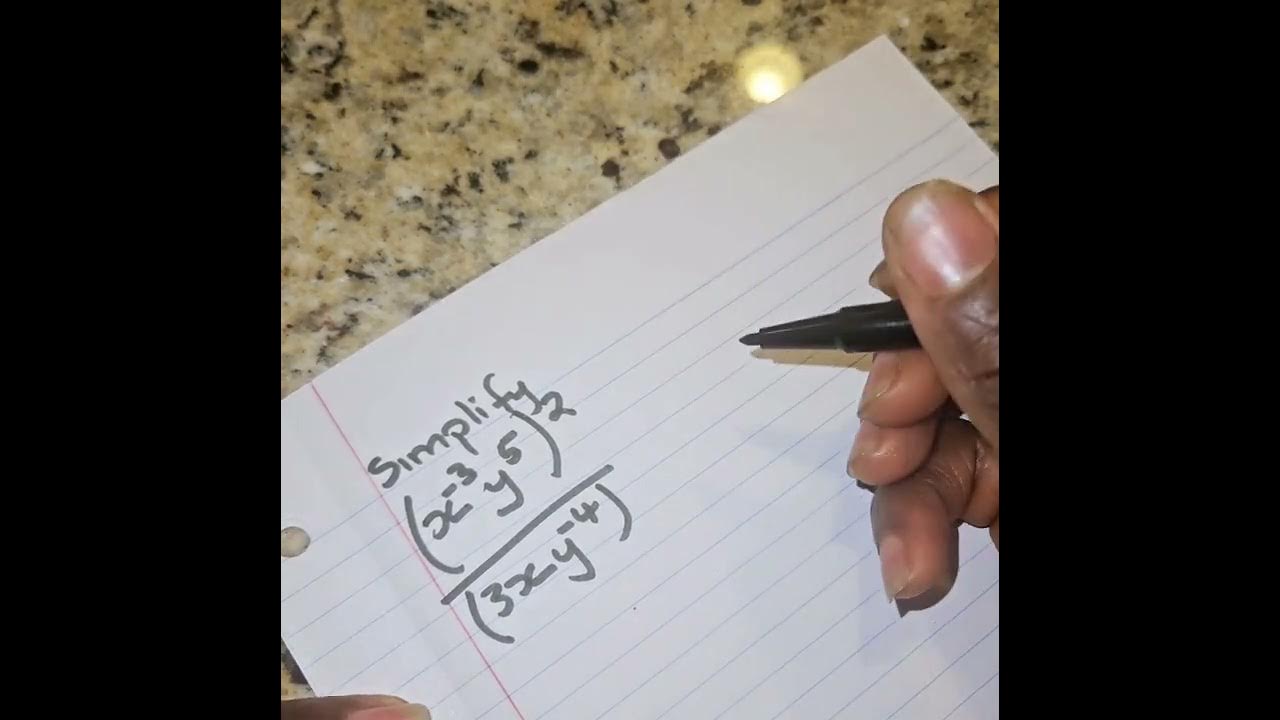 Simplify
(x⁻³y⁵)²
(3xy⁻⁴)